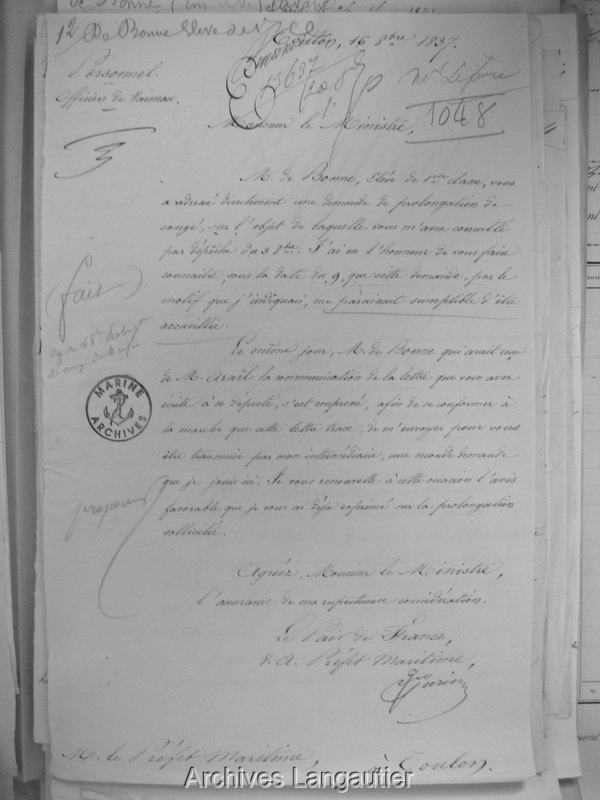 12 De Bonne Eleve de 1
Toulon, 16 8bre 1837.
Personnel.
Officiers de Vaisseau.
13637
20 8
Mr Lefevre
1048
Monsieur le Ministre,
M. de Bonne, Elève de 1ère classe, vous
a adressé directement une demande de prolongation de
congé, sur l'objet de laquelle vous m'avez consulté
par dépêche du 3 8bre. J'ai eu l'honneur de vous faire
connaître, sous la date du 9, que cette demande, par le
motif que j'indiquai, me paraissait susceptible d'être
accueillie.
(fait)
Le même jour, M. de Bonne qui avait reçu
de M. la communication de la lettre que vous avez
écrite à ce député, s'est empressé, afin de se conformer à
la marche que cette lettre trace, de m'envoyer pour vous
être transmise par mon intermédiaire, une seconde demande
que je joins ici. Je vous renouvelle à cette occasion l'avis
favorable que je vous ai déjà exprimé sur la prolongation
sollicitée.
MARINE
ARCHIVES
Agréez, Monsieur le Ministre,
l'assurance de ma respectueuse considération.
Le Pair de France,
V. A. Préfet Maritime,
M. le Préfet Maritime, à Toulon.
Archives Langautier